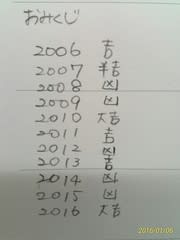 おみくじ
2006 吉
2007 半吉
2008 凶
2009 凶
2010 大吉
2011 吉
2012 凶
2013 吉
2014 凶
2015 凶
2016 大吉
2016/01/06